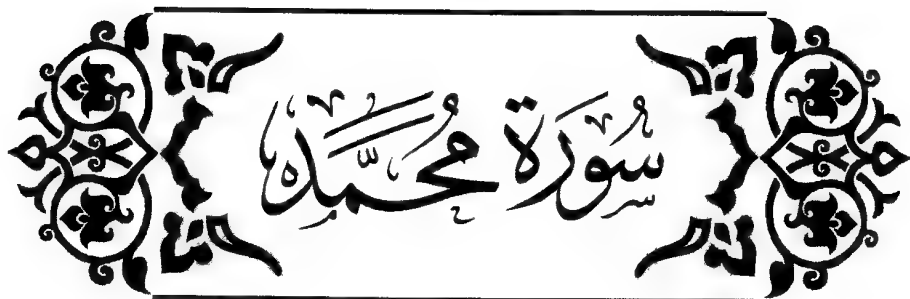 سُورَة مُحَمَّد